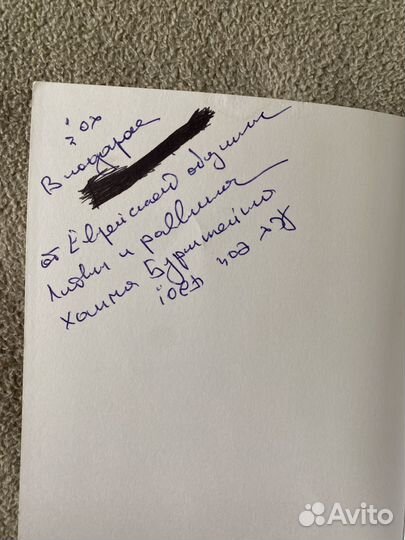 В подарок
от Еврейской общины
Литвы и раввина
Хаима Бурштейна
Avito